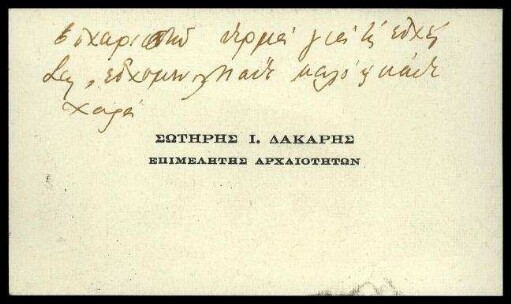 Εὐχαριστῶ θερμά γιά τίς εὐχές
Σας, εὐχόμενος πᾶν καλό & κάθε
χαρά
ΣΩΤΗΡΗΣ Ι. ΔΑΚΑΡΗΣ
ΕΠΙΜΕΛΗΤΗΣ ΑΡΧΑΙΟΤΗΤΩΝ